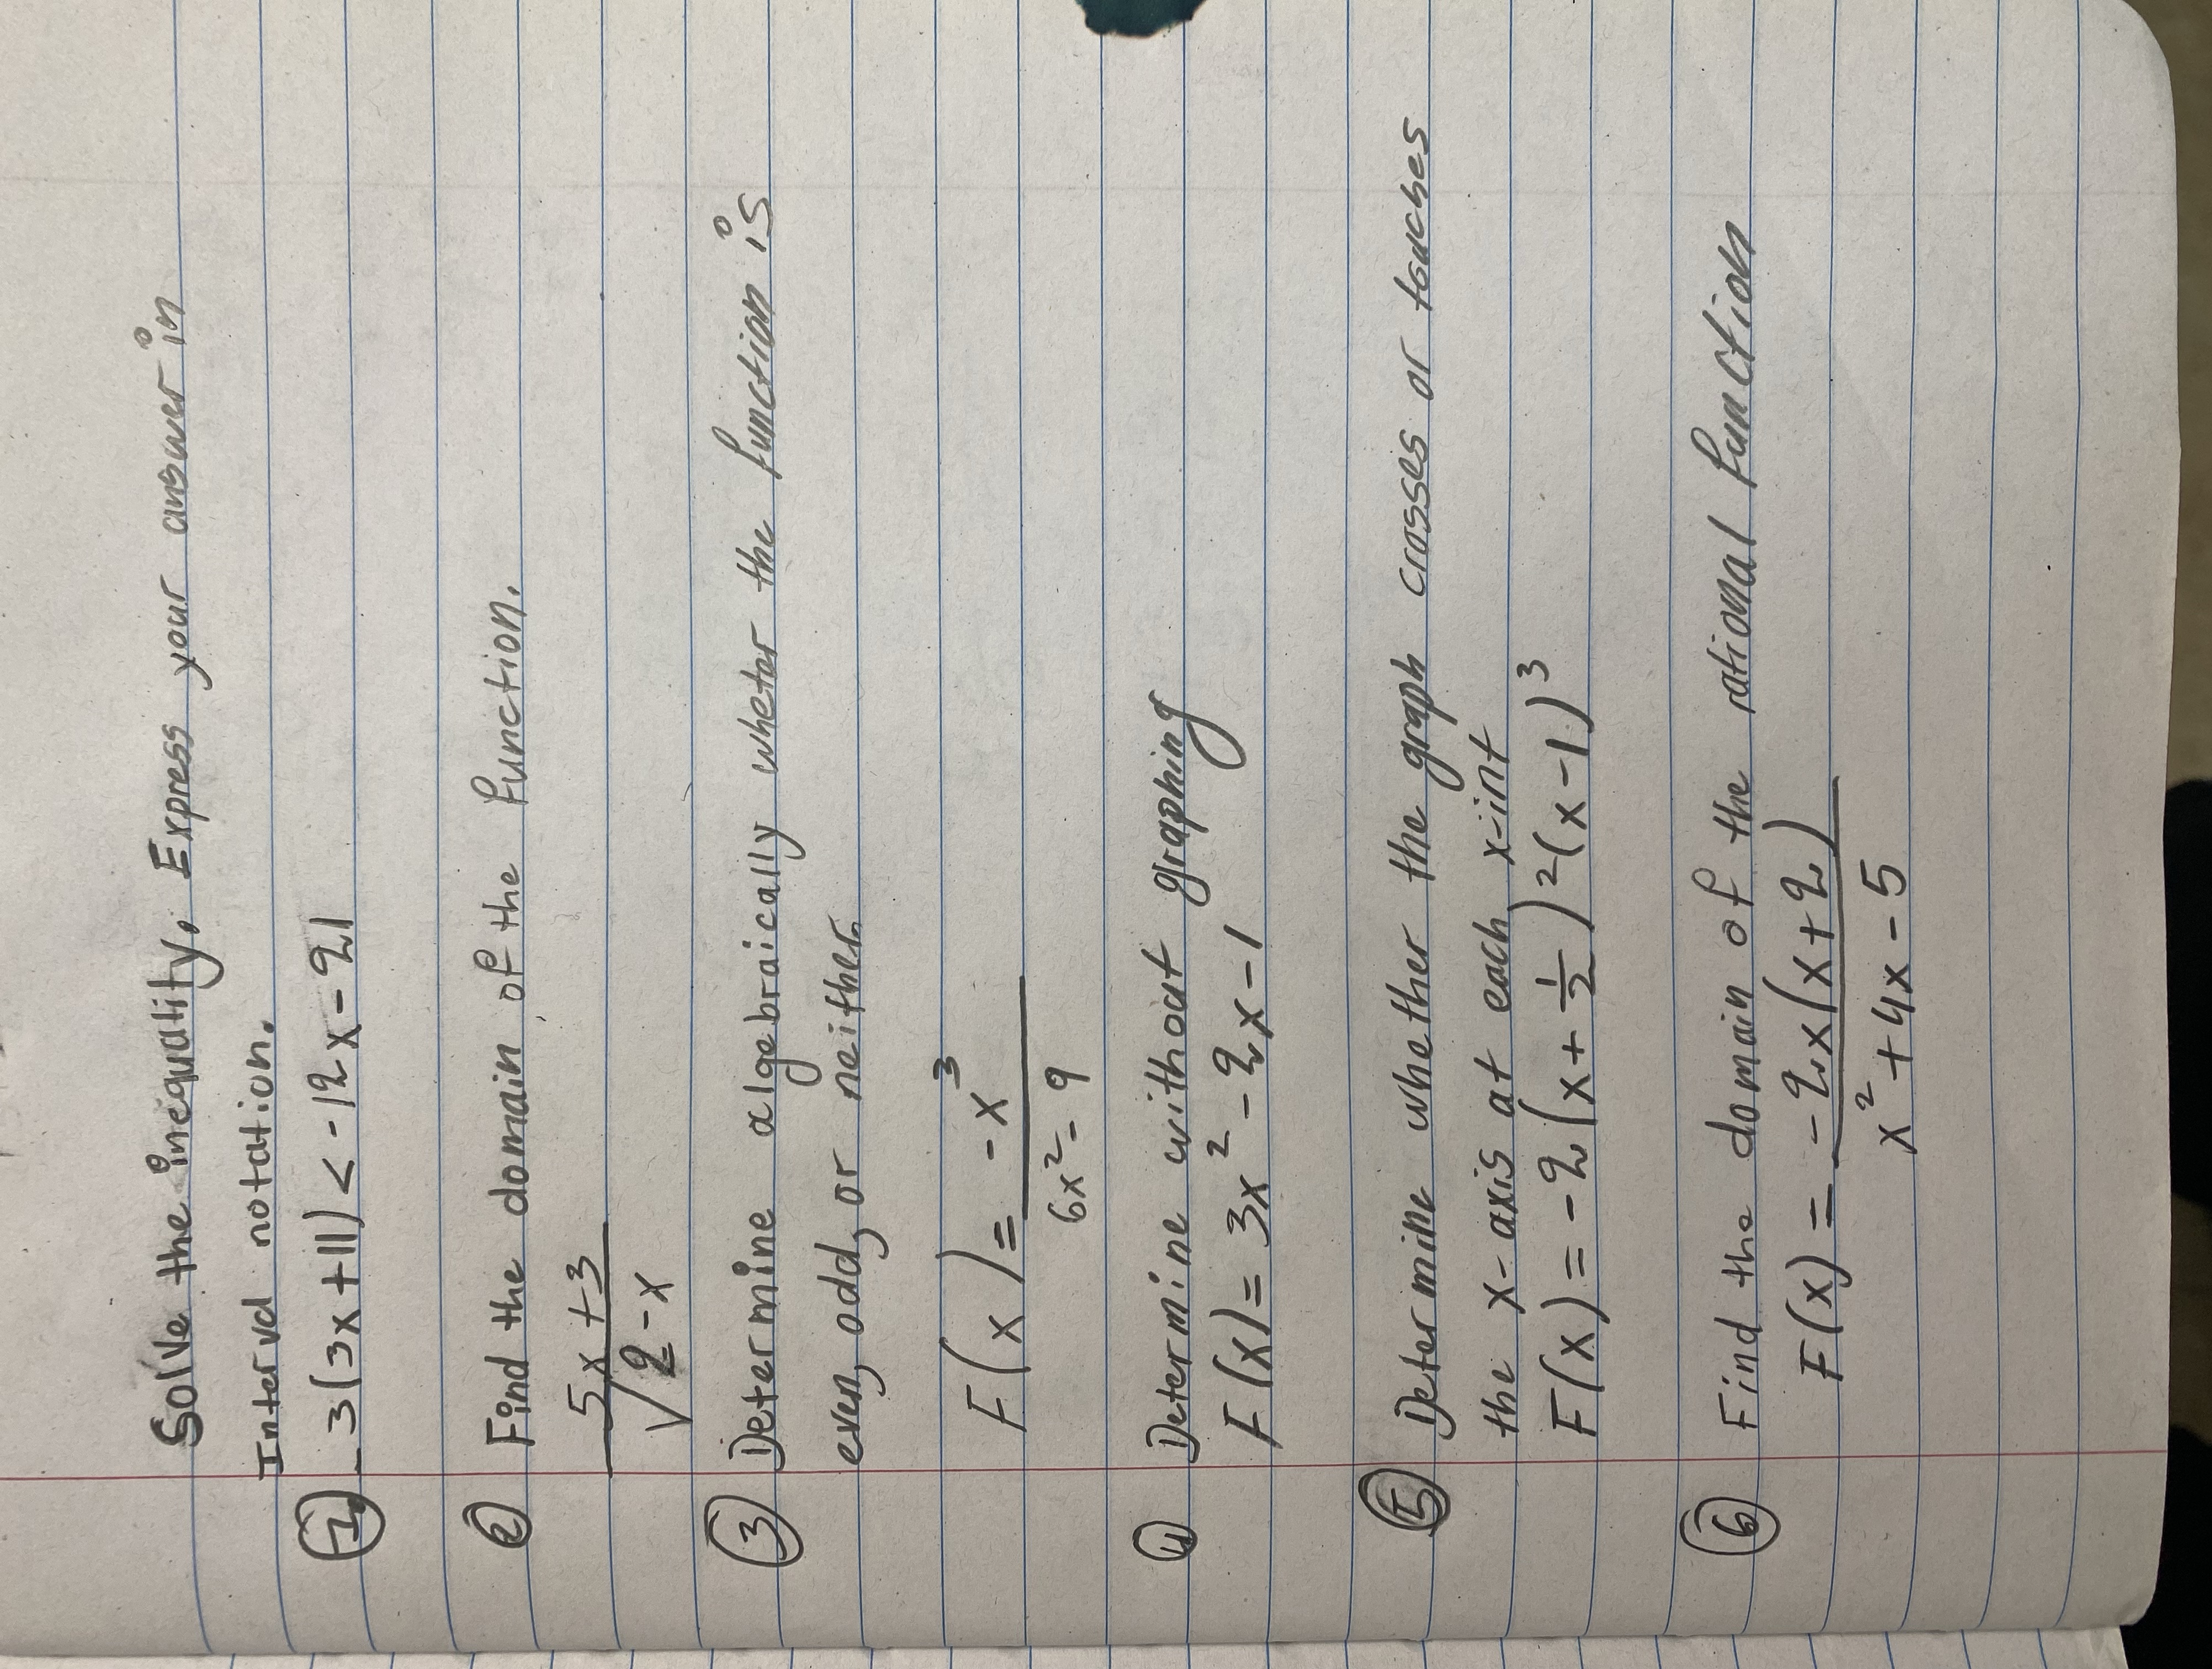 Solve the inequality. Express your answer in
Interval notation.
1. -3(3x+11) < -12x-21
2 Find the domain of the function.
5x+3
√2-x
3 Determine algebraically whetar the function is
even, odd, or neither.
F(x) = -x³
6x²-9
4 Determine without graphing
F(x) = 3x²-2x-1
5 Determine whether the graph crosses or touches
the x-axis at each x-int
F(x) = -2(x+½)²(x-1)³
6 Find the domain of the rational function
F(x) = -2x(x+2)
x²+4x-5